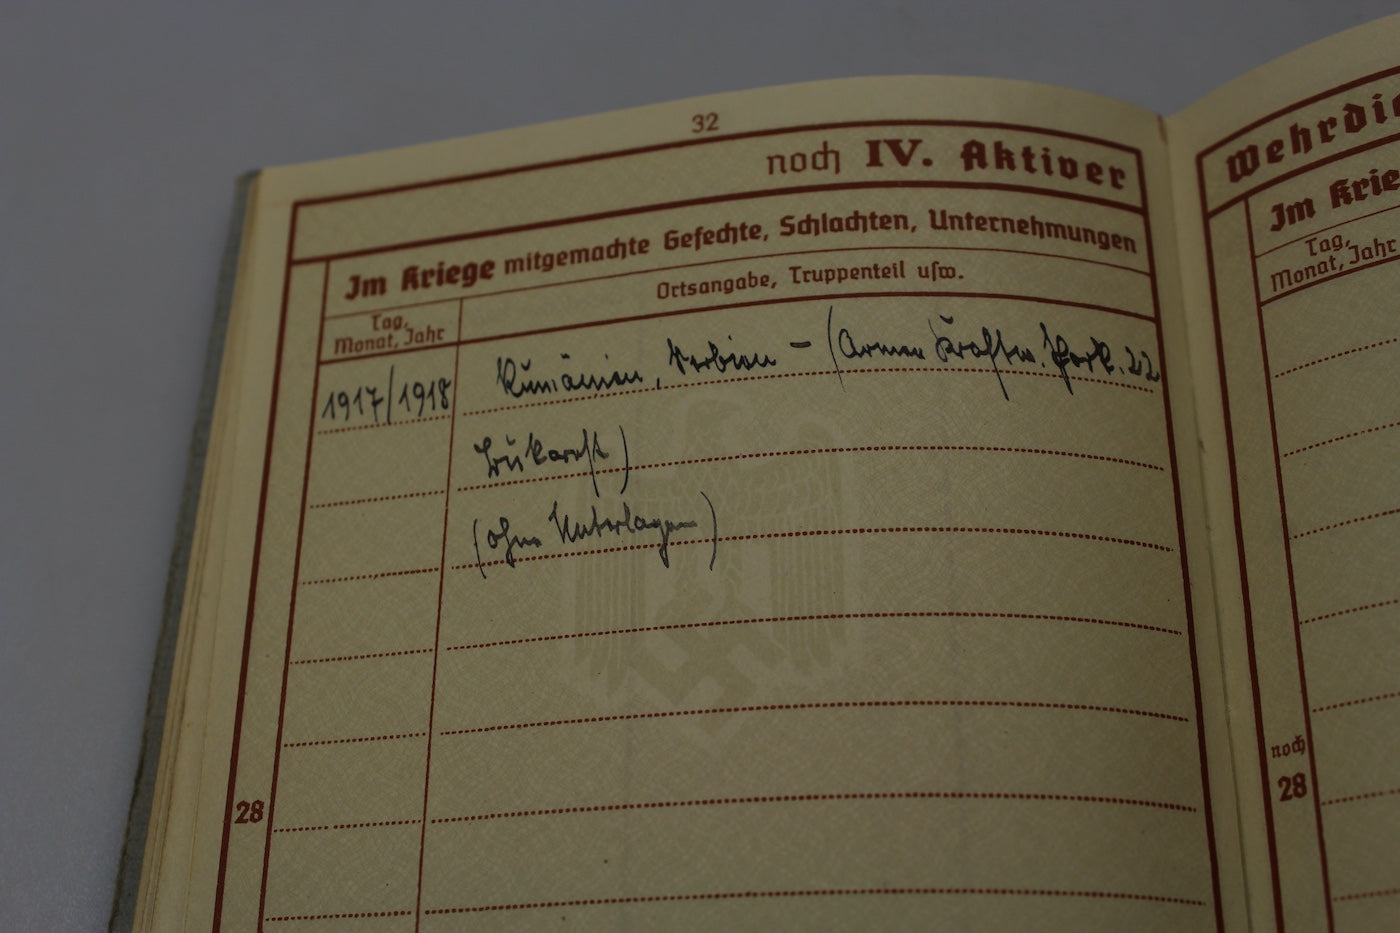 32
noch IV. Aktiver
Im Kriege mitgemachte Gefechte, Schlachten, Unternehmungen
Tag,
Monat, Jahr
Ortsangabe, Truppenteil usw.
1917/1918
Rumänien, Serbien – (Armee Kraftw. Park. 22
Bukarest)
(ohne Unterlagen)
28
Wehrdie
Im Krie
Tag,
Monat, Jahr
noch
28